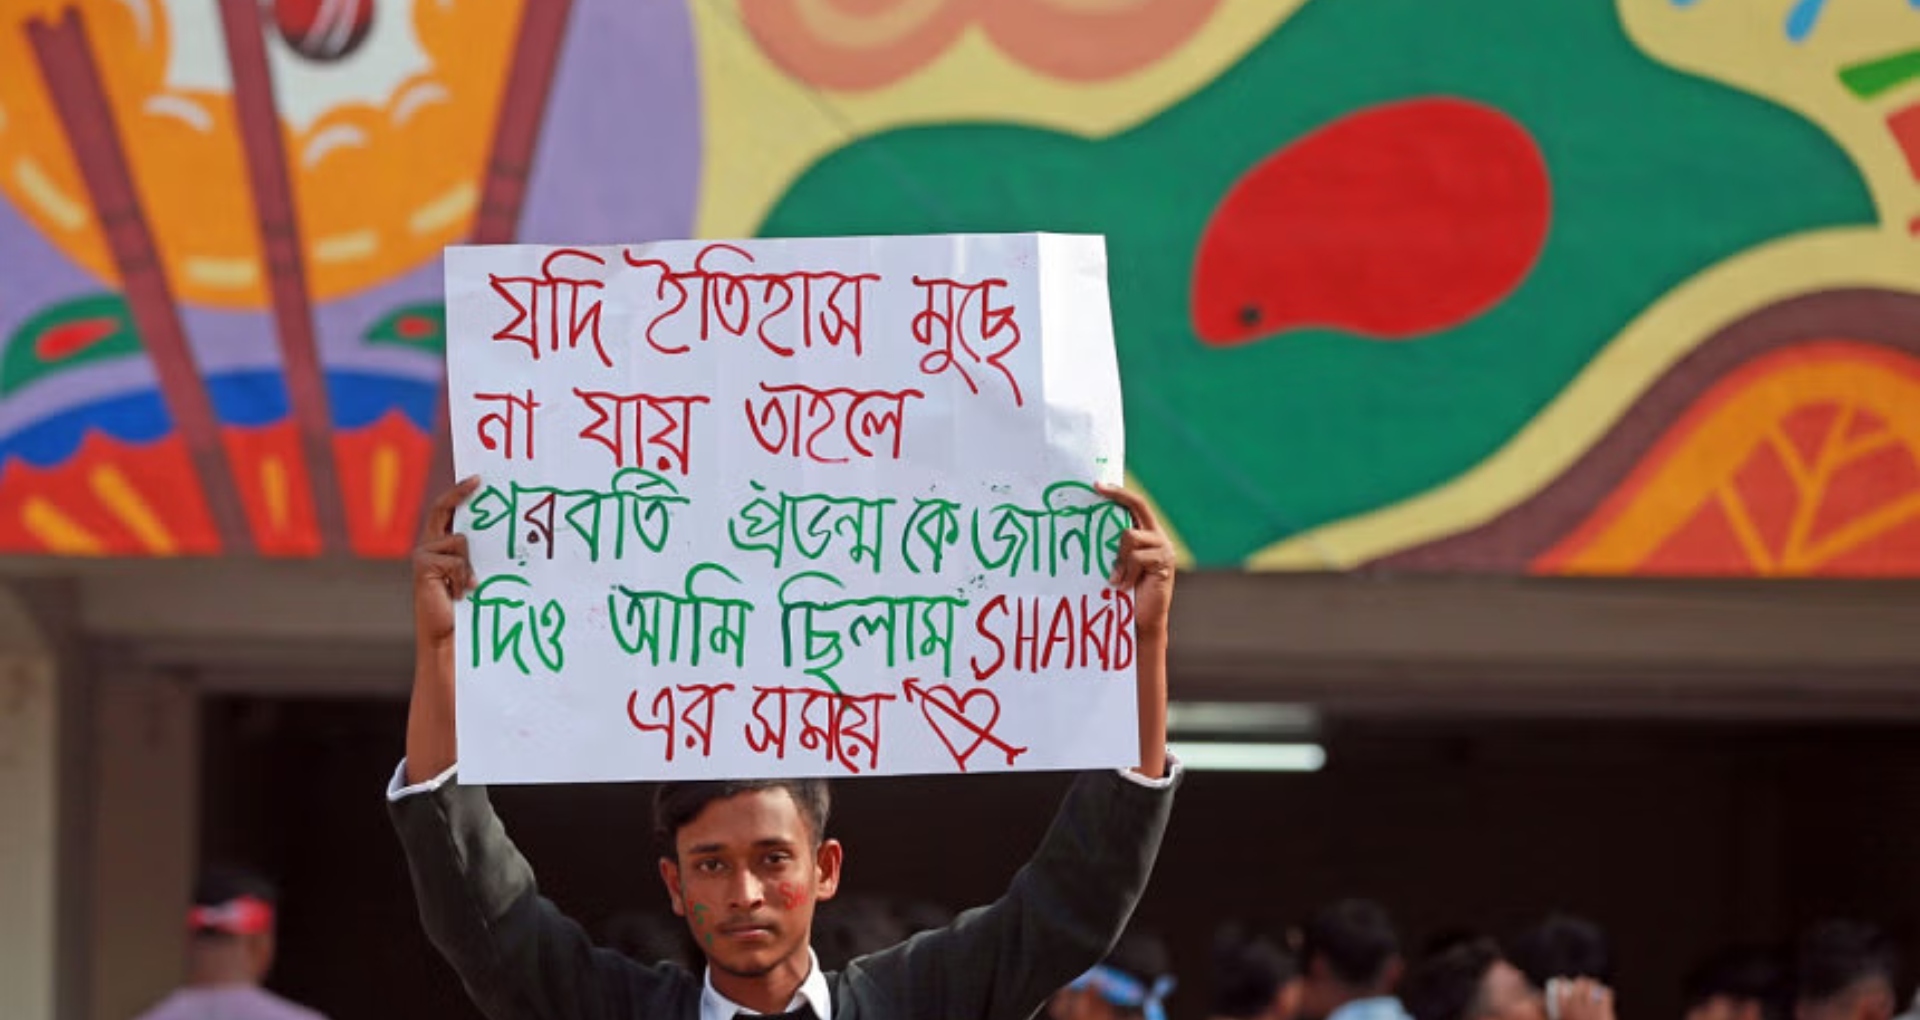 যদি ইতিহাস মুছে
না যায় তাহলে
পরবর্তি প্রজন্ম কে জানিয়ে
দিও আমি ছিলাম SHAKIB
এর সময়ে